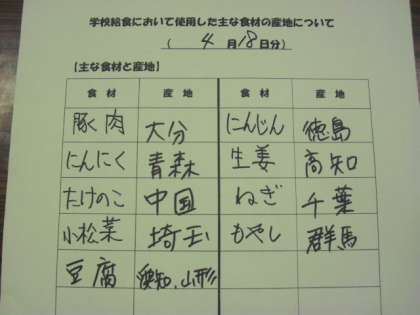 学校給食において使用した主な食材の産地について
( 4 月 18 日分)
【主な食材と産地】
食材 産地 食材 産地
豚肉 大分 にんじん 徳島
にんにく 青森 生姜 高知
たけのこ 中国 ねぎ 千葉
小松菜 埼玉 もやし 群馬
豆腐 愛知、山形